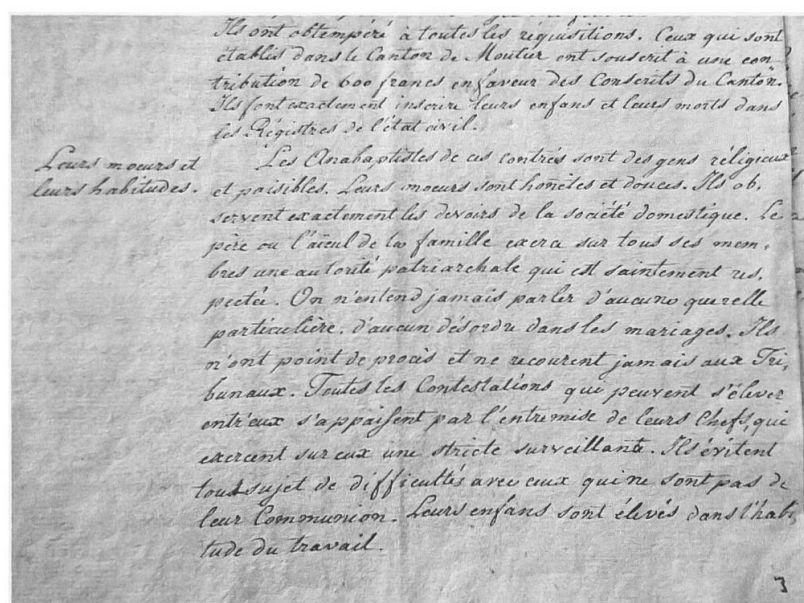 Ils ont obtempéré à toutes les réquisitions. Ceux qui sont
établis dans le Canton de Moutier ont souscrit à une con
tribution de 600 francs en faveur des Conscrits du Canton.
Ils font exactement inscrire leurs enfans et leurs morts dans
les Régistres de l'état civil.
Leurs moeurs et
leurs habitudes.
Les Anabaptistes de ces contrés sont des gens réligieux
et paisibles. Leurs moeurs sont honêtes et douces. Ils ob,
servent exactement les devoirs de la société domestique. Le
père ou l'aïeul de la famille exerce sur tous ses mem,
bres une autorité patriarchale qui est saintement res,
pectée. On n'entend jamais parler d'aucune querelle
particulière, d'aucun désordre dans les mariages. Ils
n'ont point de procès et ne recourent jamais aux Tri,
bunaux. Toutes les Contestations qui peuvent s'élever
entr'eux s'appaisent par l'entremise de leurs Chefs, qui
exercent sur eux une stricte surveillante. Ils évitent
tout sujet de difficultés avec ceux qui ne sont pas de
leur Communion. Leurs enfans sont élevés dans l'habi,
tude du travail.
3